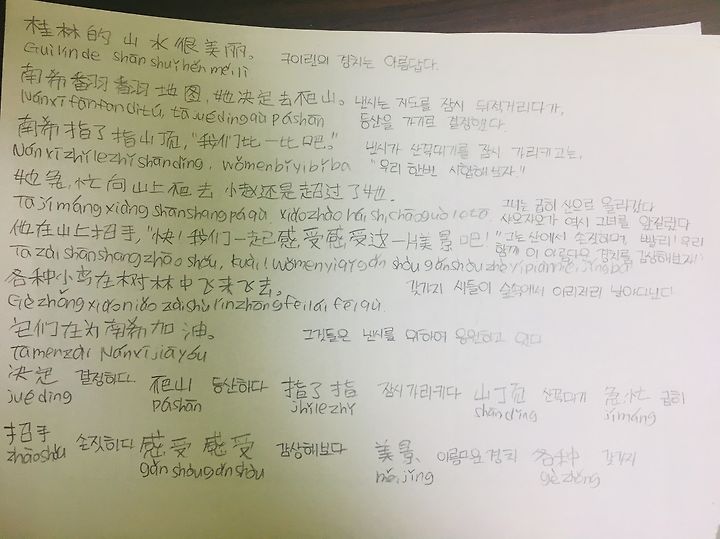 桂林的山水很美丽。
Guìlínde shānshuǐ hěn měilì 구이린의 경치는 아름답다.
南希翻翻地图,她决定去爬山。 낸시는 지도를 잠시 뒤적거리다가,
Nánxī fānfān dìtú, tā juédìng qù páshān 등산을 가기로 결정했다.
南希指了指山顶,"我们比一比吧。" 낸시가 산꼭대기를 잠시 가리키고는,
Nánxī zhǐlezhǐ shāndǐng, wǒmen bǐyìbǐ ba "우리 한번 시합해보자"
她急忙向山上爬去 小赵还是超过了她. 그녀는 급히 산으로 올라갔다
Tā jímáng xiàng shānshang páqù. xiǎozhào háishi chāoguò le tā. 샤오자오가 역시 그녀를 앞질렀다
他在山上招手,"快!我们一起感受感受这一片美景吧!" 그는 산에서 손짓하며, 빨리! 우리
Tā zài shānshang zhāoshǒu, kuài! wǒmen yìqǐ gǎnshòu gǎnshòu zhè yípiàn měijǐng ba! 함께 이 아름다운 경치를 감상해보자!
各种小鸟在树林中飞来飞去。 갖가지 새들이 숲속에서 이리저리 날아다닌다
Gèzhǒng xiǎoniǎo zài shùlín zhōng fēilái fēiqù.
它们在为南希加油。 그것들은 낸시를 위하여 응원하고 있다
Tāmen zài Nánxī jiāyóu
决定 결정하다. 爬山 등산하다 指了指 잠시 가리키다 山顶 산꼭대기 急忙 급히
juédìng páshān zhǐlezhǐ shāndǐng jímáng
招手 손짓하다 感受感受 감상해보다 美景 아름다운 경치 各种 갖가지
zhāoshǒu gǎnshòugǎnshòu měijǐng gèzhǒng